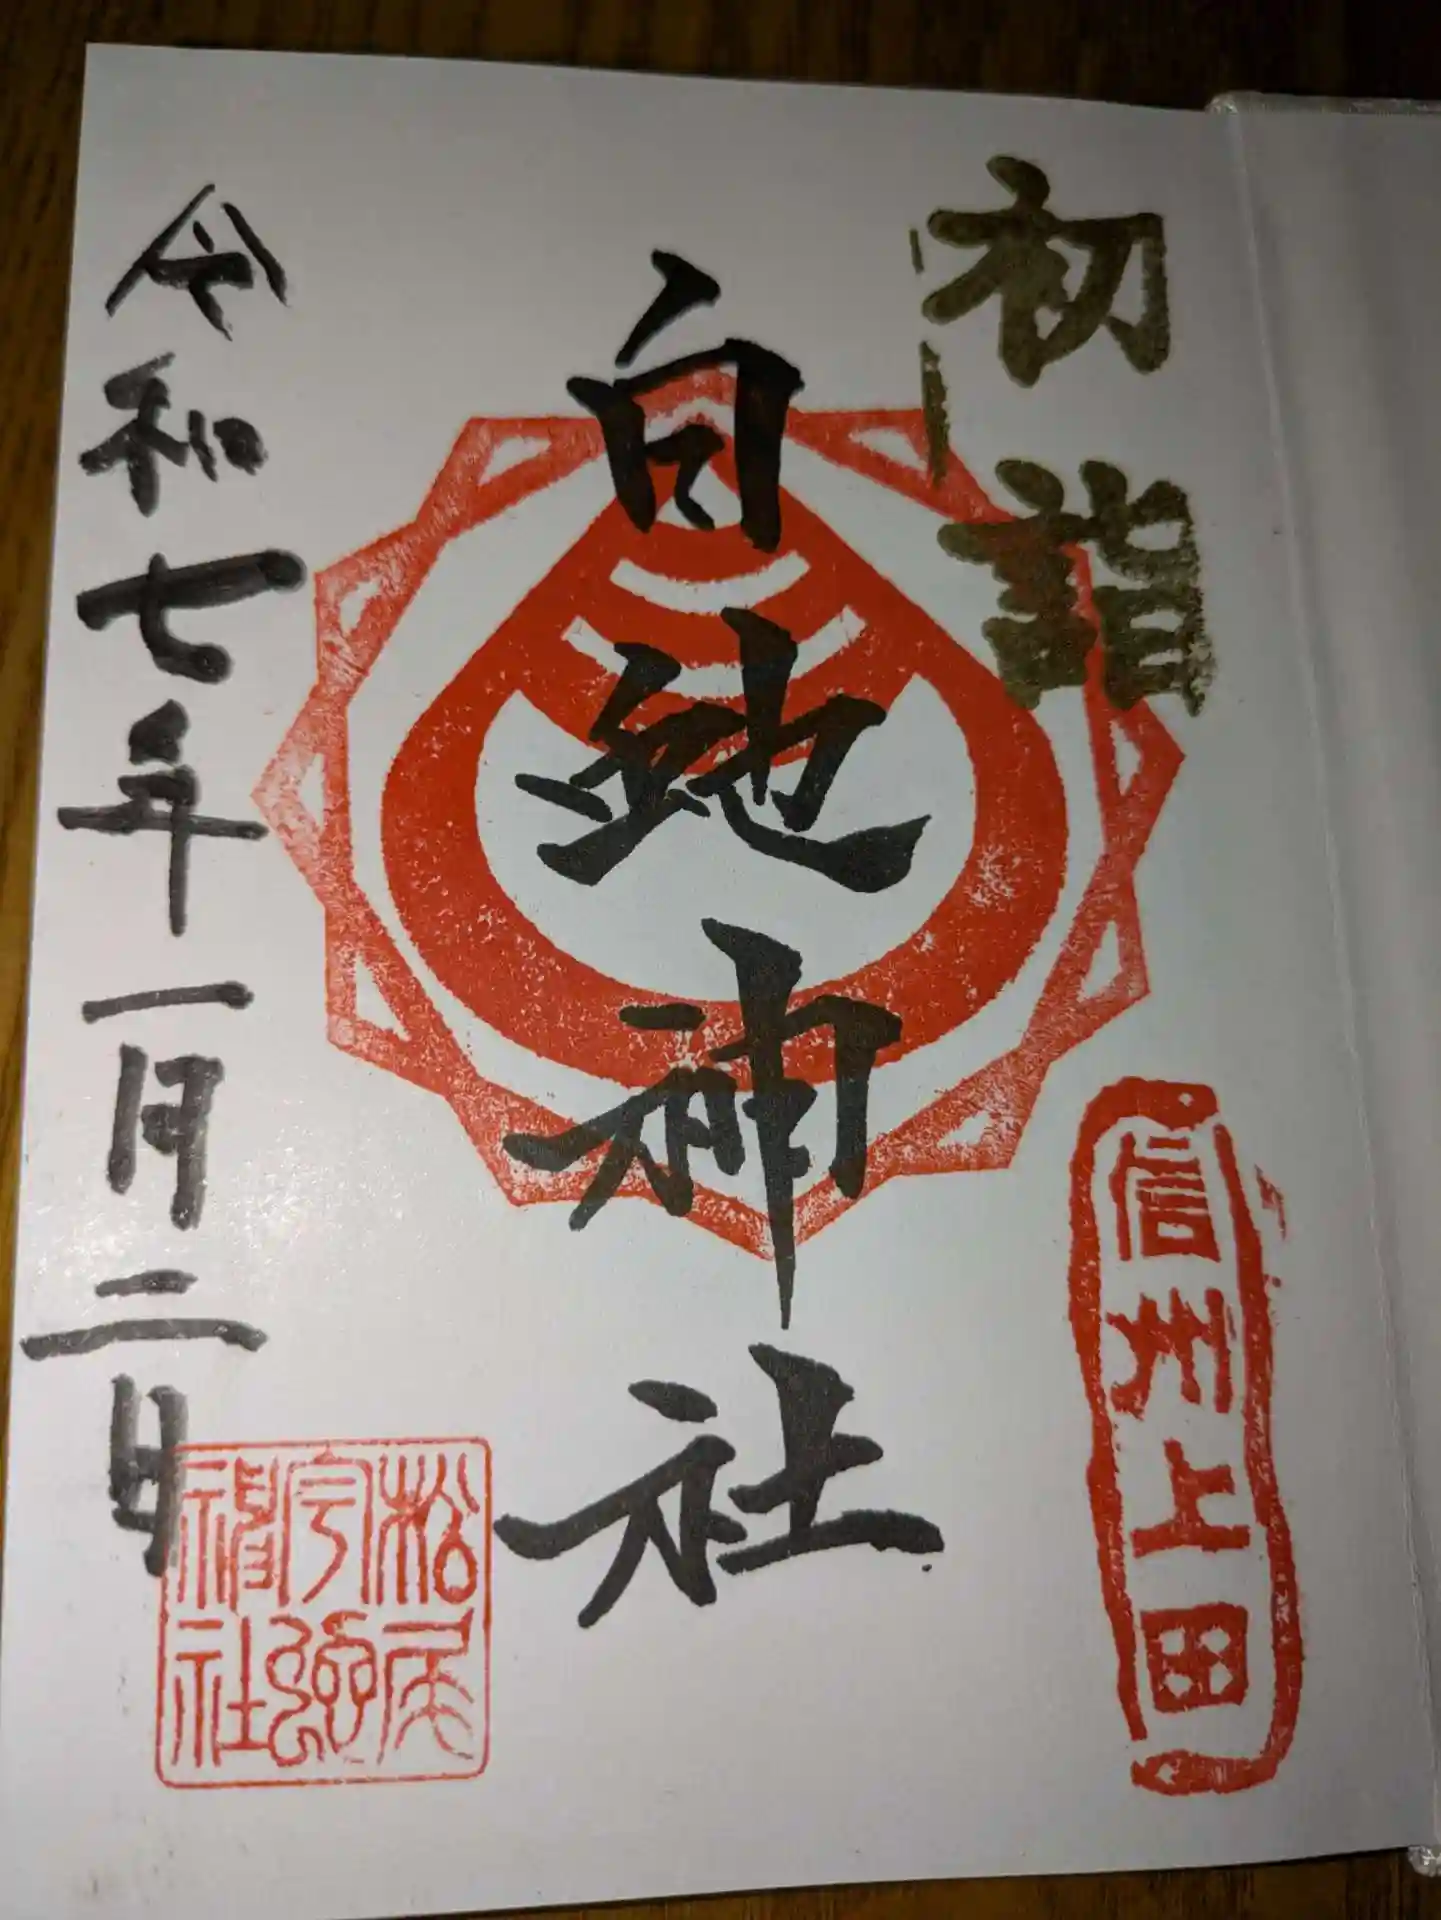 初詣
信州上田
白蛇神社
令和七年一月二日
松尾
宇蛇
神社